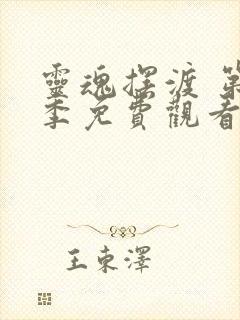 靈魂擺渡 第
季免費觀看
王東澤